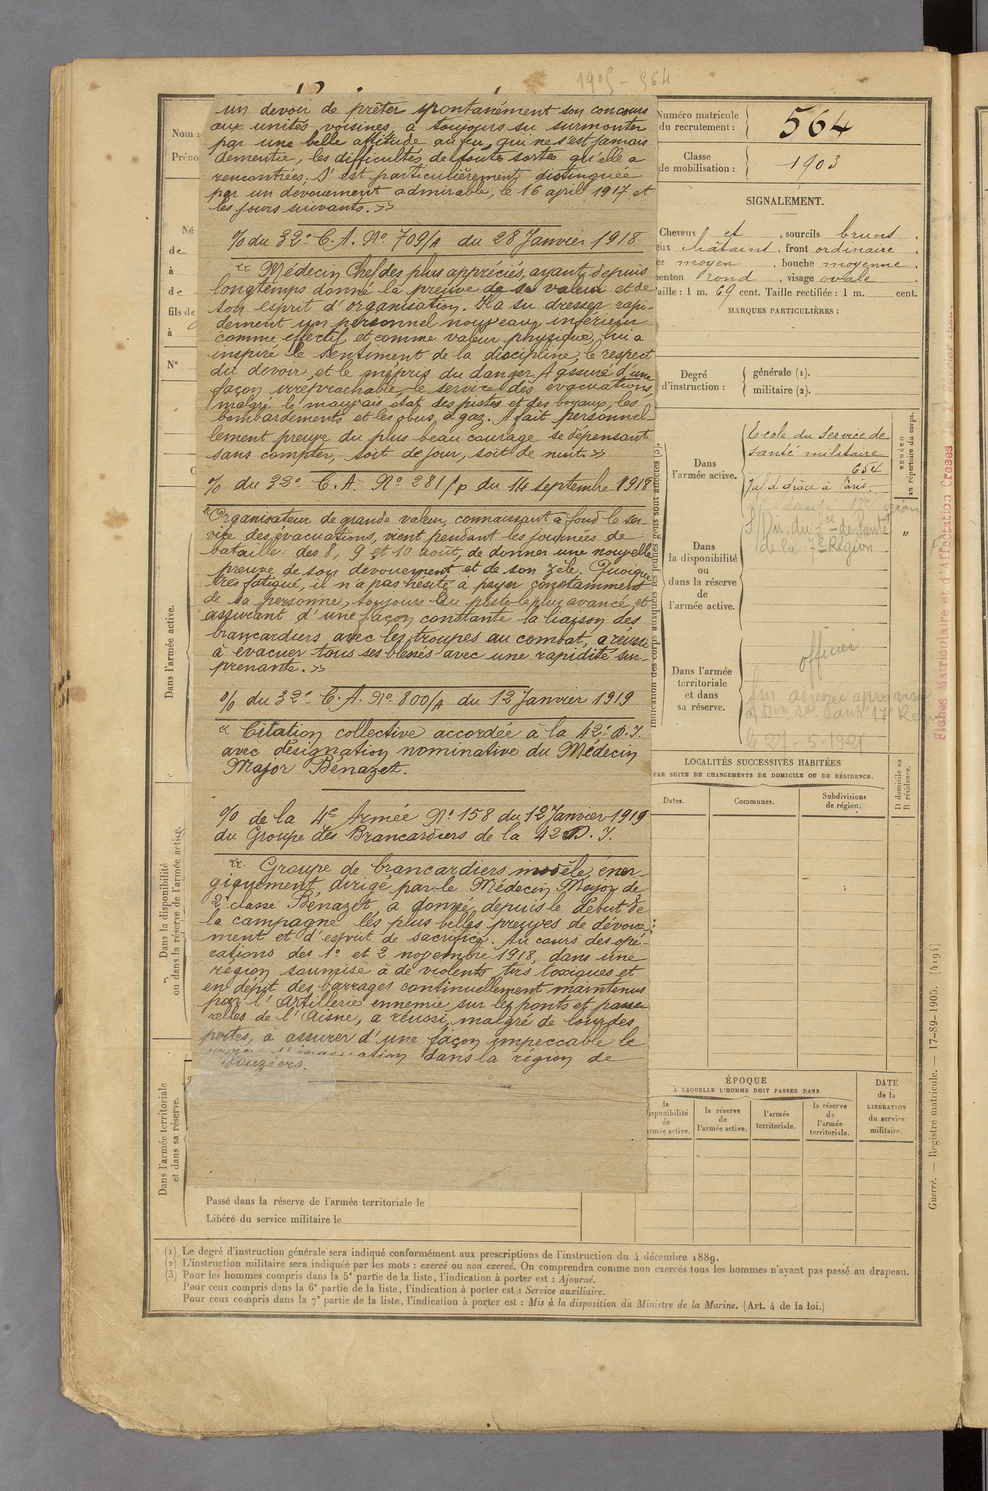 1905 - 564
un devoir de prêter spontanément son concours
aux unités voisines, a toujours su surmonter
par une belle attitude au feu, qui ne s'est jamais
démentie, les difficultés de toutes sortes qu'elle a
rencontrées. S'est particulièrement distinguée
par un dévouement admirable, le 16 avril 1917 et
les jours suivants. »
% du 32e C. A. No 709/A du 28 Janvier 1918
« Médecin Chef des plus appréciés, ayant depuis
longtemps donné la preuve de sa valeur et de
son esprit d'organisation. Il a su dresser rapi-
dement un personnel nouveau, inférieur
comme effectif et comme valeur physique, lui a
inspiré le sentiment de la discipline, le respect
du devoir, et le mépris du danger. A assuré d'une
façon irréprochable, le service des évacuations,
malgré le mauvais état des pistes et des boyaux, les
bombardements et les obus à gaz. A fait personnel
lement preuve du plus beau courage se dépensant
sans compter, soit de jour, soit de nuit. »
% du 32e C. A. No 281/p du 14 septembre 1918
« Organisateur de grande valeur, connaissant à fond le ser-
vice des évacuations, vient pendant les journées de
bataille des 8, 9 et 10 août, de donner une nouvelle
preuve de son dévouement et de son zèle. Quoique
très fatigué, il n'a pas hésité à payer constamment
de sa personne, toujours au poste le plus avancé, et
assurant d'une façon constante la liaison des
brancardiers avec les troupes au combat, a réussi
à évacuer tous ses blessés avec une rapidité sur-
prenante. »
% du 32e C. A. No 800/A du 12 Janvier 1919
« Citation collective accordée à la 42e D. I.
avec désignation nominative du Médecin
Major Bénazet.
% de la 4e Armée No 158 du 12 Janvier 1919
du Groupe des Brancardiers de la 42 D. I.
« Groupe de brancardiers modèle, éner-
giquement dirigé par le Médecin Major de
2e classe Bénazet, a donné, depuis le début de
la campagne les plus belles preuves de dévoue-
ment et d'esprit de sacrifice. Au cours des opé-
rations des 1er et 2 novembre 1918, dans une
région soumise à de violents tirs toxiques et
en dépit des barrages continuellement maintenus
par l'Artillerie ennemie sur les ponts et passe
relles de l'Aisne, a réussi, malgré de lourdes
pertes, à assurer d'une façon impeccable le
dans la région de
Vouziers.
Nom :
Préno
Né
de
à
de
fils de
à
No
Dans l'armée active.
Dans la disponibilité
ou dans la réserve de l'armée active.
Dans l'armée territoriale
et dans sa réserve.
Passé dans la réserve de l'armée territoriale le
Libéré du service militaire le
Numéro matricule
du recrutement : 564
Classe
de mobilisation : 1903
SIGNALEMENT.
Cheveux et , sourcils bruns ,
eux châtains , front ordinaire
ez moyen , bouche moyenne ,
enton rond , visage ovale .
aille : 1 m. 69 cent. Taille rectifiée : 1 m. cent.
MARQUES PARTICULIÈRES :
Degré
d'instruction :
générale (1).
militaire (2).
Indication des corps auxquels les jeunes gens sont affectés (3).
NUMÉRO
au répertoire du corps.
Dans
l'armée active.
Ecole du Service de
santé militaire
654
Val de Grâce à Paris.
Dans
la disponibilité
ou
dans la réserve de
l'armée active.
"
de Santé
de la 7e Région
Dans l'armée
territoriale
et dans
sa réserve.
officier
le 27 - 5 - 1921
Fiches Matriculaire et d'Affectation Créées
LOCALITÉS SUCCESSIVES HABITÉES
PAR SUITE DE CHANGEMENTS DE DOMICILE OU DE RÉSIDENCE.
Dates.
Communes.
Subdivisions
de région.
D domicile ou
R résidence.
ÉPOQUE
À LAQUELLE L'HOMME DOIT PASSER DANS
la
disponibilité
de
l'armée active.
la réserve
de
l'armée active.
l'armée
territoriale.
la réserve
de
l'armée
territoriale.
DATE
de la
LIBÉRATION
du service
militaire.
Guerre. — Registre matricule. — 17-89-1905. [4194]
(1) Le degré d'instruction générale sera indiqué conformément aux prescriptions de l'instruction du 4 décembre 1889.
(2) L'instruction militaire sera indiquée par les mots : exercé ou non exercé. On comprendra comme non exercés tous les hommes n'ayant pas passé au drapeau.
(3) Pour les hommes compris dans la 5e partie de la liste, l'indication à porter est : Ajourné.
Pour ceux compris dans la 6e partie de la liste, l'indication à porter est : Service auxiliaire.
Pour ceux compris dans la 7e partie de la liste, l'indication à porter est : Mis à la disposition du Ministre de la Marine. (Art. 4 de la loi.)